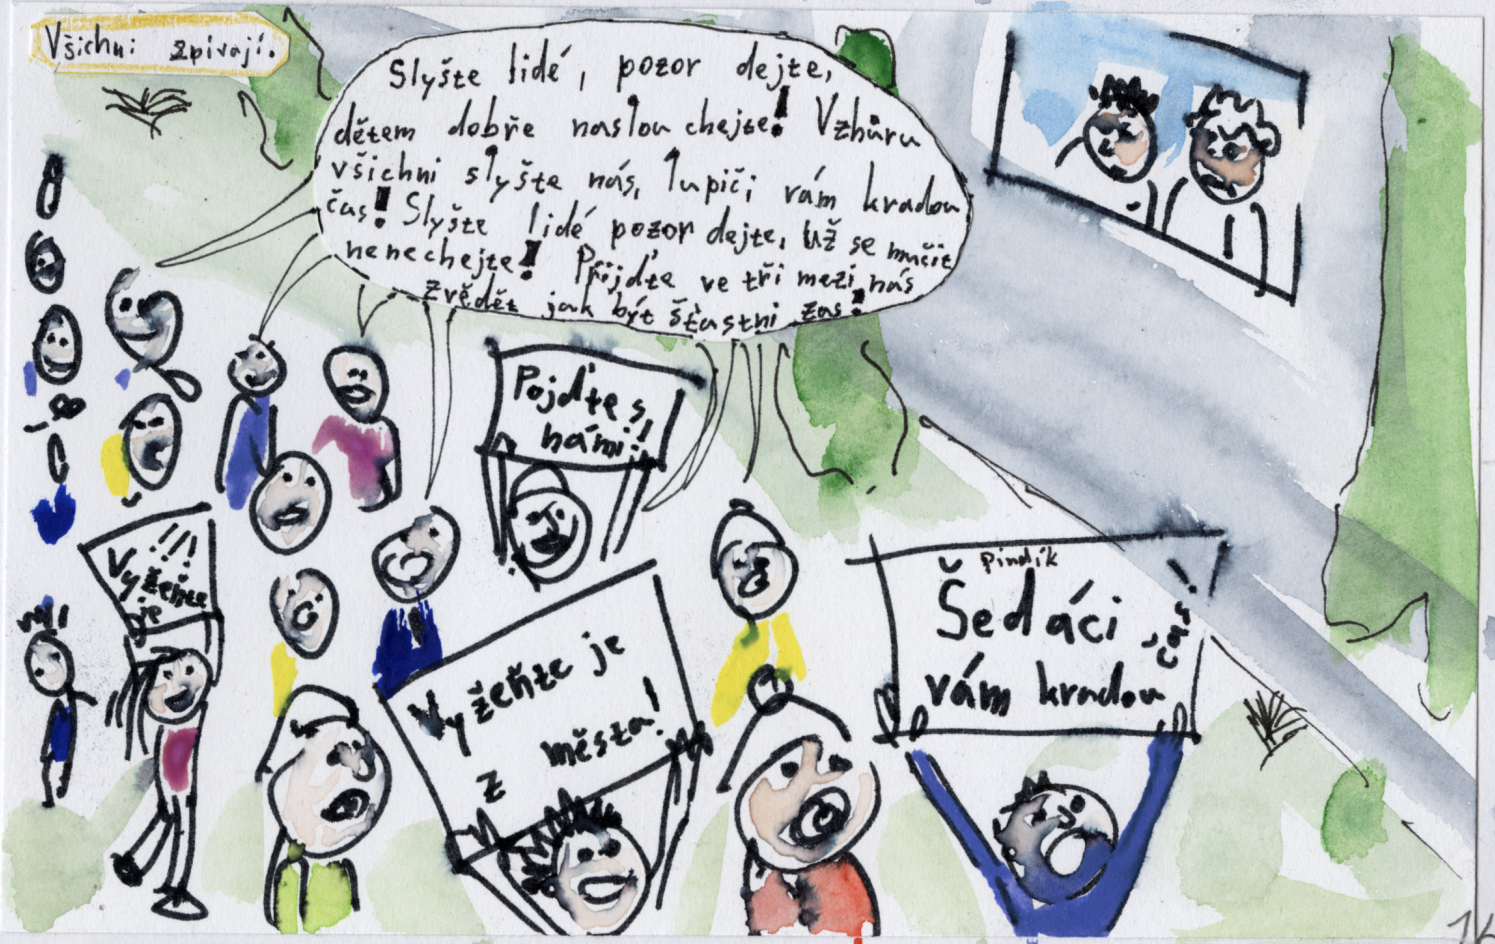 Všichni zpívají.
Slyšte lidé, pozor dejte,
dětem dobře naslouchejte! Vzhůru
všichni slyšte nás, lupiči vám kradou
čas! Slyšte lidé pozor dejte, už se mučit
nenechejte! Přijďte ve tři mezi nás
zvědět jak být šťastni zas!
Pojďte s
námi!!
Vyžeňte
je
!!!
Vyžeňte je
z města!
pindík
Šedáci
vám kradou
čas!
16